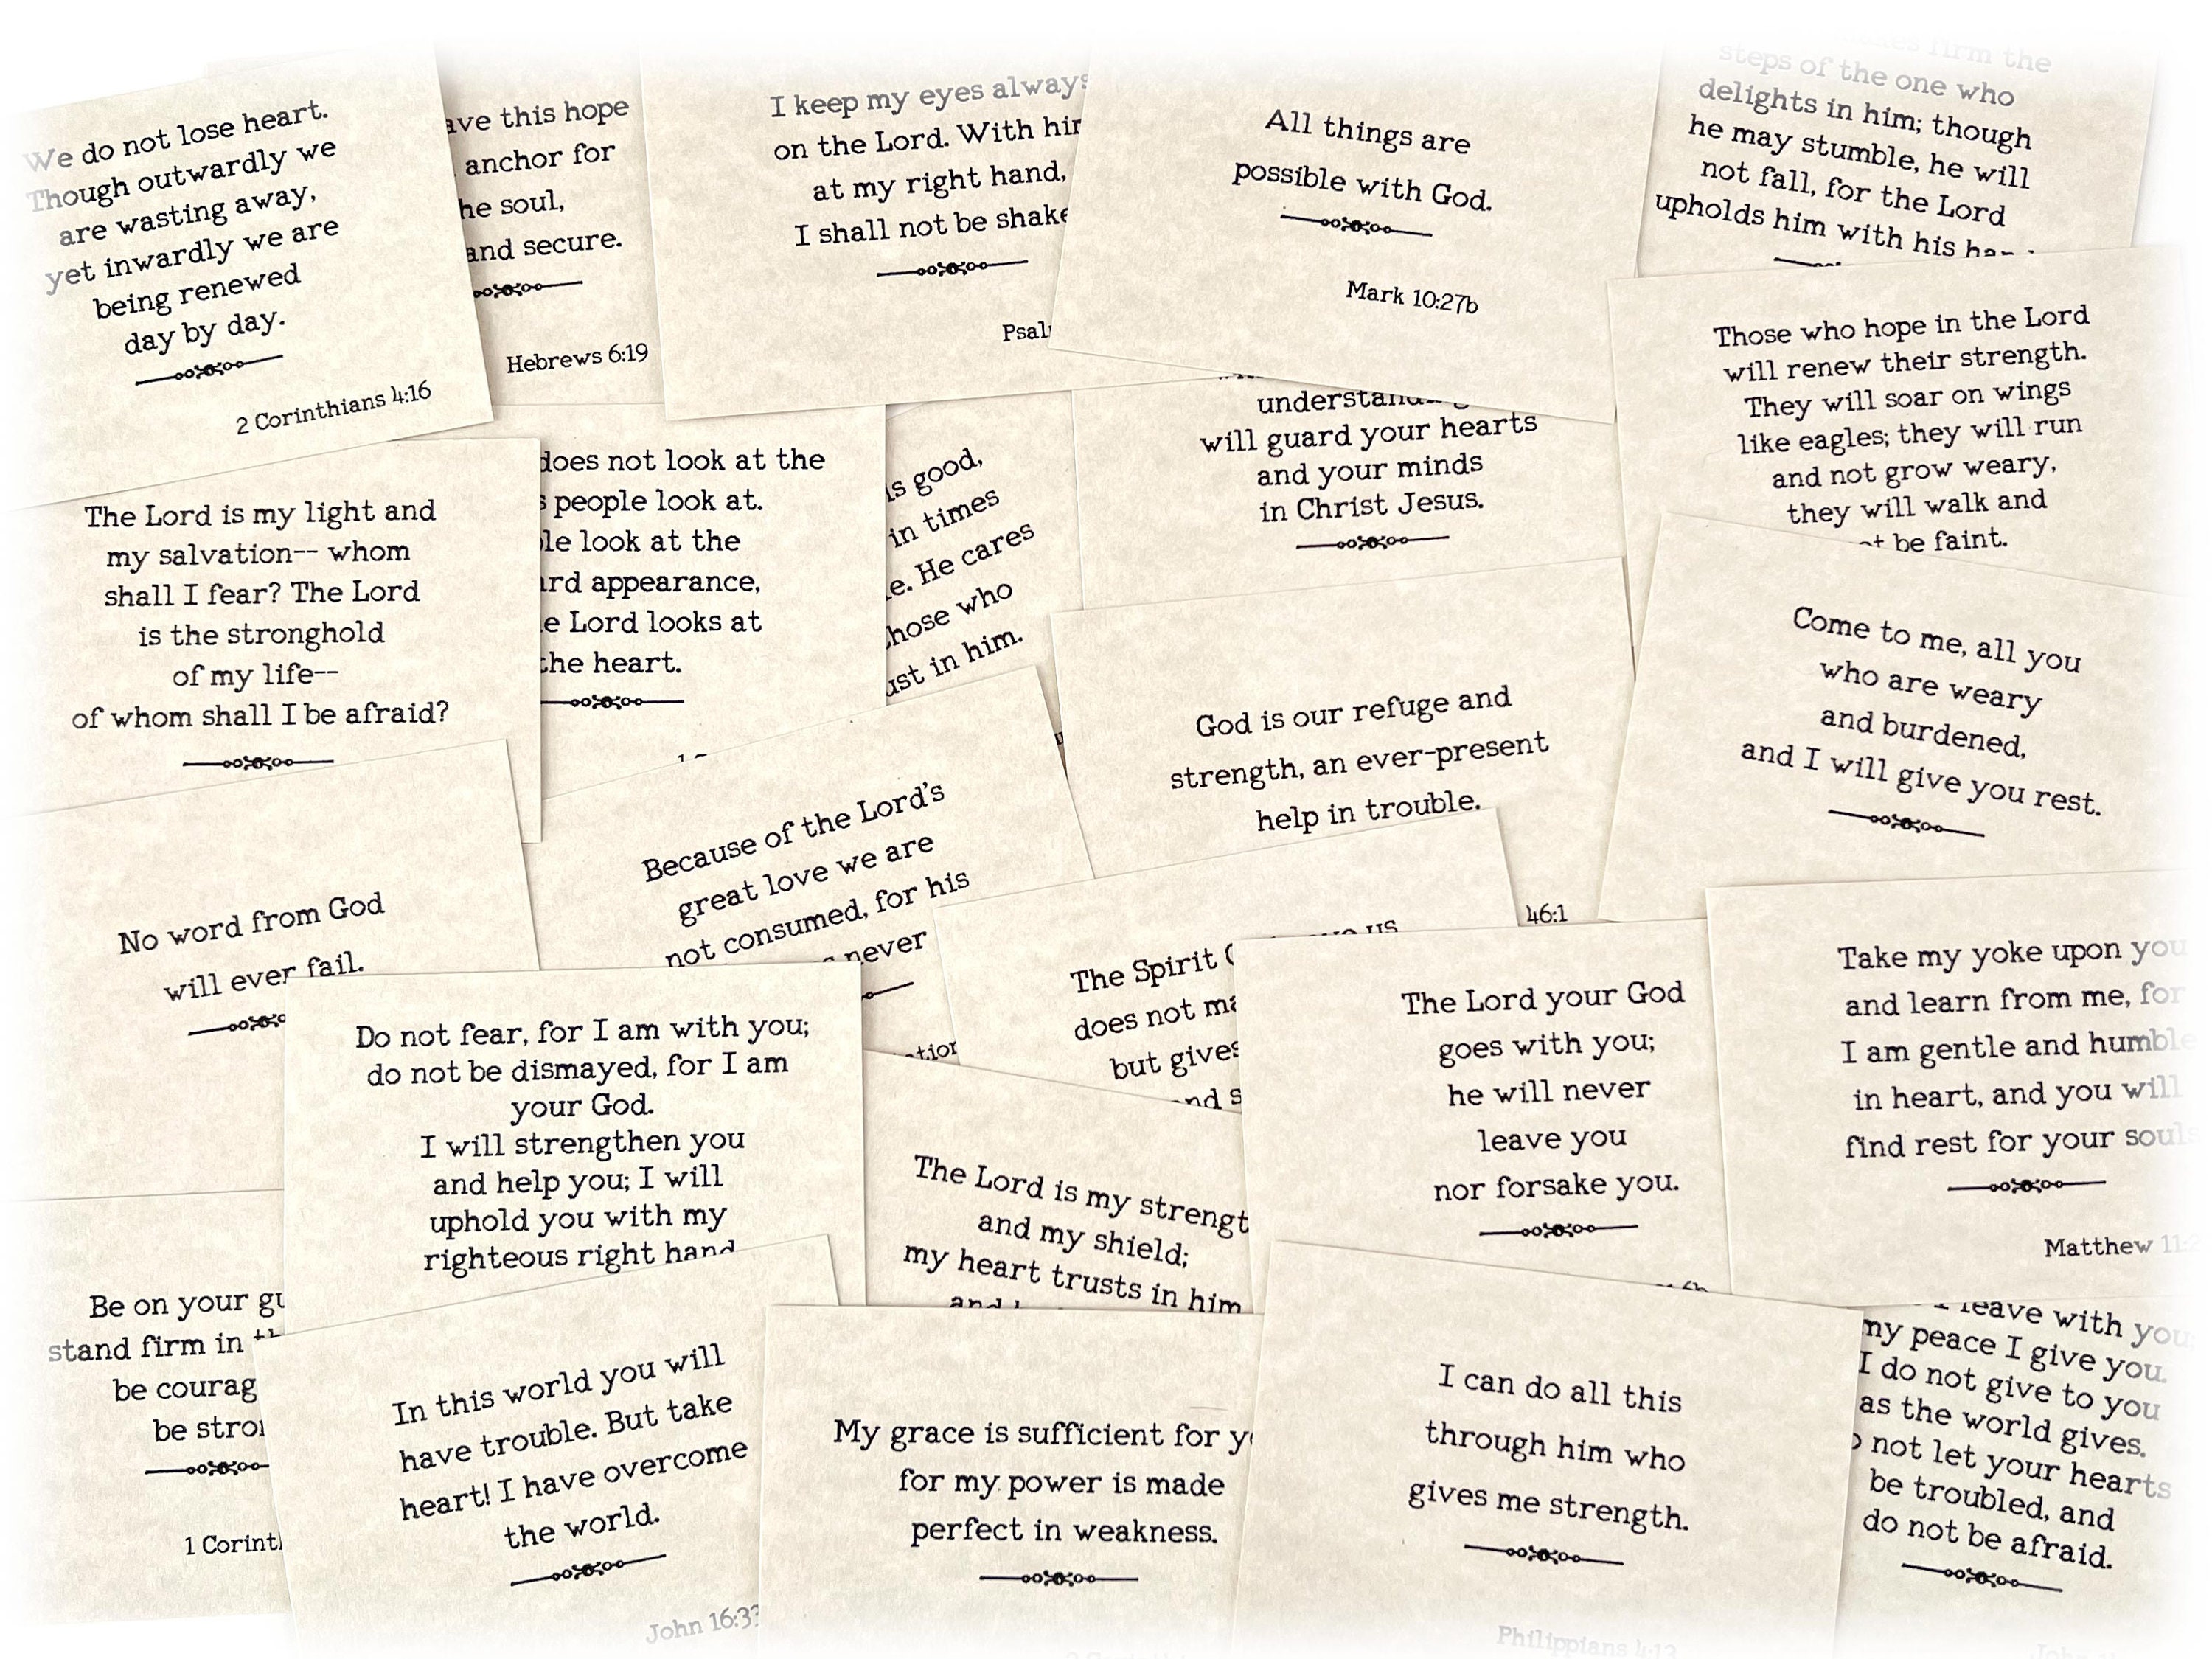 We do not lose heart.
Though outwardly we
are wasting away,
yet inwardly we are
being renewed
day by day.
2 Corinthians 4:16
ave this hope
anchor for
he soul,
and secure.
Hebrews 6:19
I keep my eyes always
on the Lord. With hi
at my right hand,
I shall not be shake
Psal
All things are
possible with God.
Mark 10:27b
firm the
steps of the one who
delights in him; though
he may stumble, he will
not fall, for the Lord
upholds him with his
Those who hope in the Lord
will renew their strength.
They will soar on wings
like eagles; they will run
and not grow weary,
they will walk and
be faint.
The Lord is my light and
my salvation-- whom
shall I fear? The Lord
is the stronghold
of my life--
of whom shall I be afraid?
does not look at the
people look at.
le look at the
rd appearance,
e Lord looks at
the heart.
is good,
in times
e. He cares
hose who
ust in him.
understanding
will guard your hearts
and your minds
in Christ Jesus.
God is our refuge and
strength, an ever-present
help in trouble.
46:1
Come to me, all you
who are weary
and burdened,
and I will give you rest.
No word from God
will ever fail.
Because of the Lord's
great love we are
not consumed, for his
never
The Spirit G
us
does not ma
but gives
nd s
The Lord your God
goes with you;
he will never
leave you
nor forsake you.
Take my yoke upon you
and learn from me, for
I am gentle and humble
in heart, and you will
find rest for your souls
Matthew 11:2
Do not fear, for I am with you;
do not be dismayed, for I am
your God.
I will strengthen you
and help you; I will
uphold you with my
righteous right hand
The Lord is my strengt
and my shield;
my heart trusts in him
and
Be on your gu
stand firm in th
be courag
be stron
1 Corint
In this world you will
have trouble. But take
heart! I have overcome
the world.
John 16:33
My grace is sufficient for y
for my power is made
perfect in weakness.
I can do all this
through him who
gives me strength.
Philippians 4:13
I leave with you
my peace I give you.
I do not give to you
as the world gives.
not let your hearts
be troubled, and
do not be afraid.